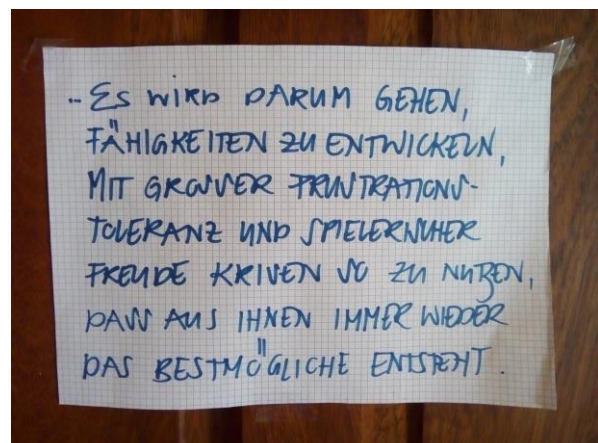 .. ES WIRD DARUM GEHEN,
FÄHIGKEITEN ZU ENTWICKELN,
MIT GROSSER FRUSTRATIONS-
TOLERANZ UND SPIELERISCHER
FREUDE KRISEN SO ZU NUTZEN,
DASS AUS IHNEN IMMER WIEDER
DAS BESTMÖGLICHE ENTSTEHT.